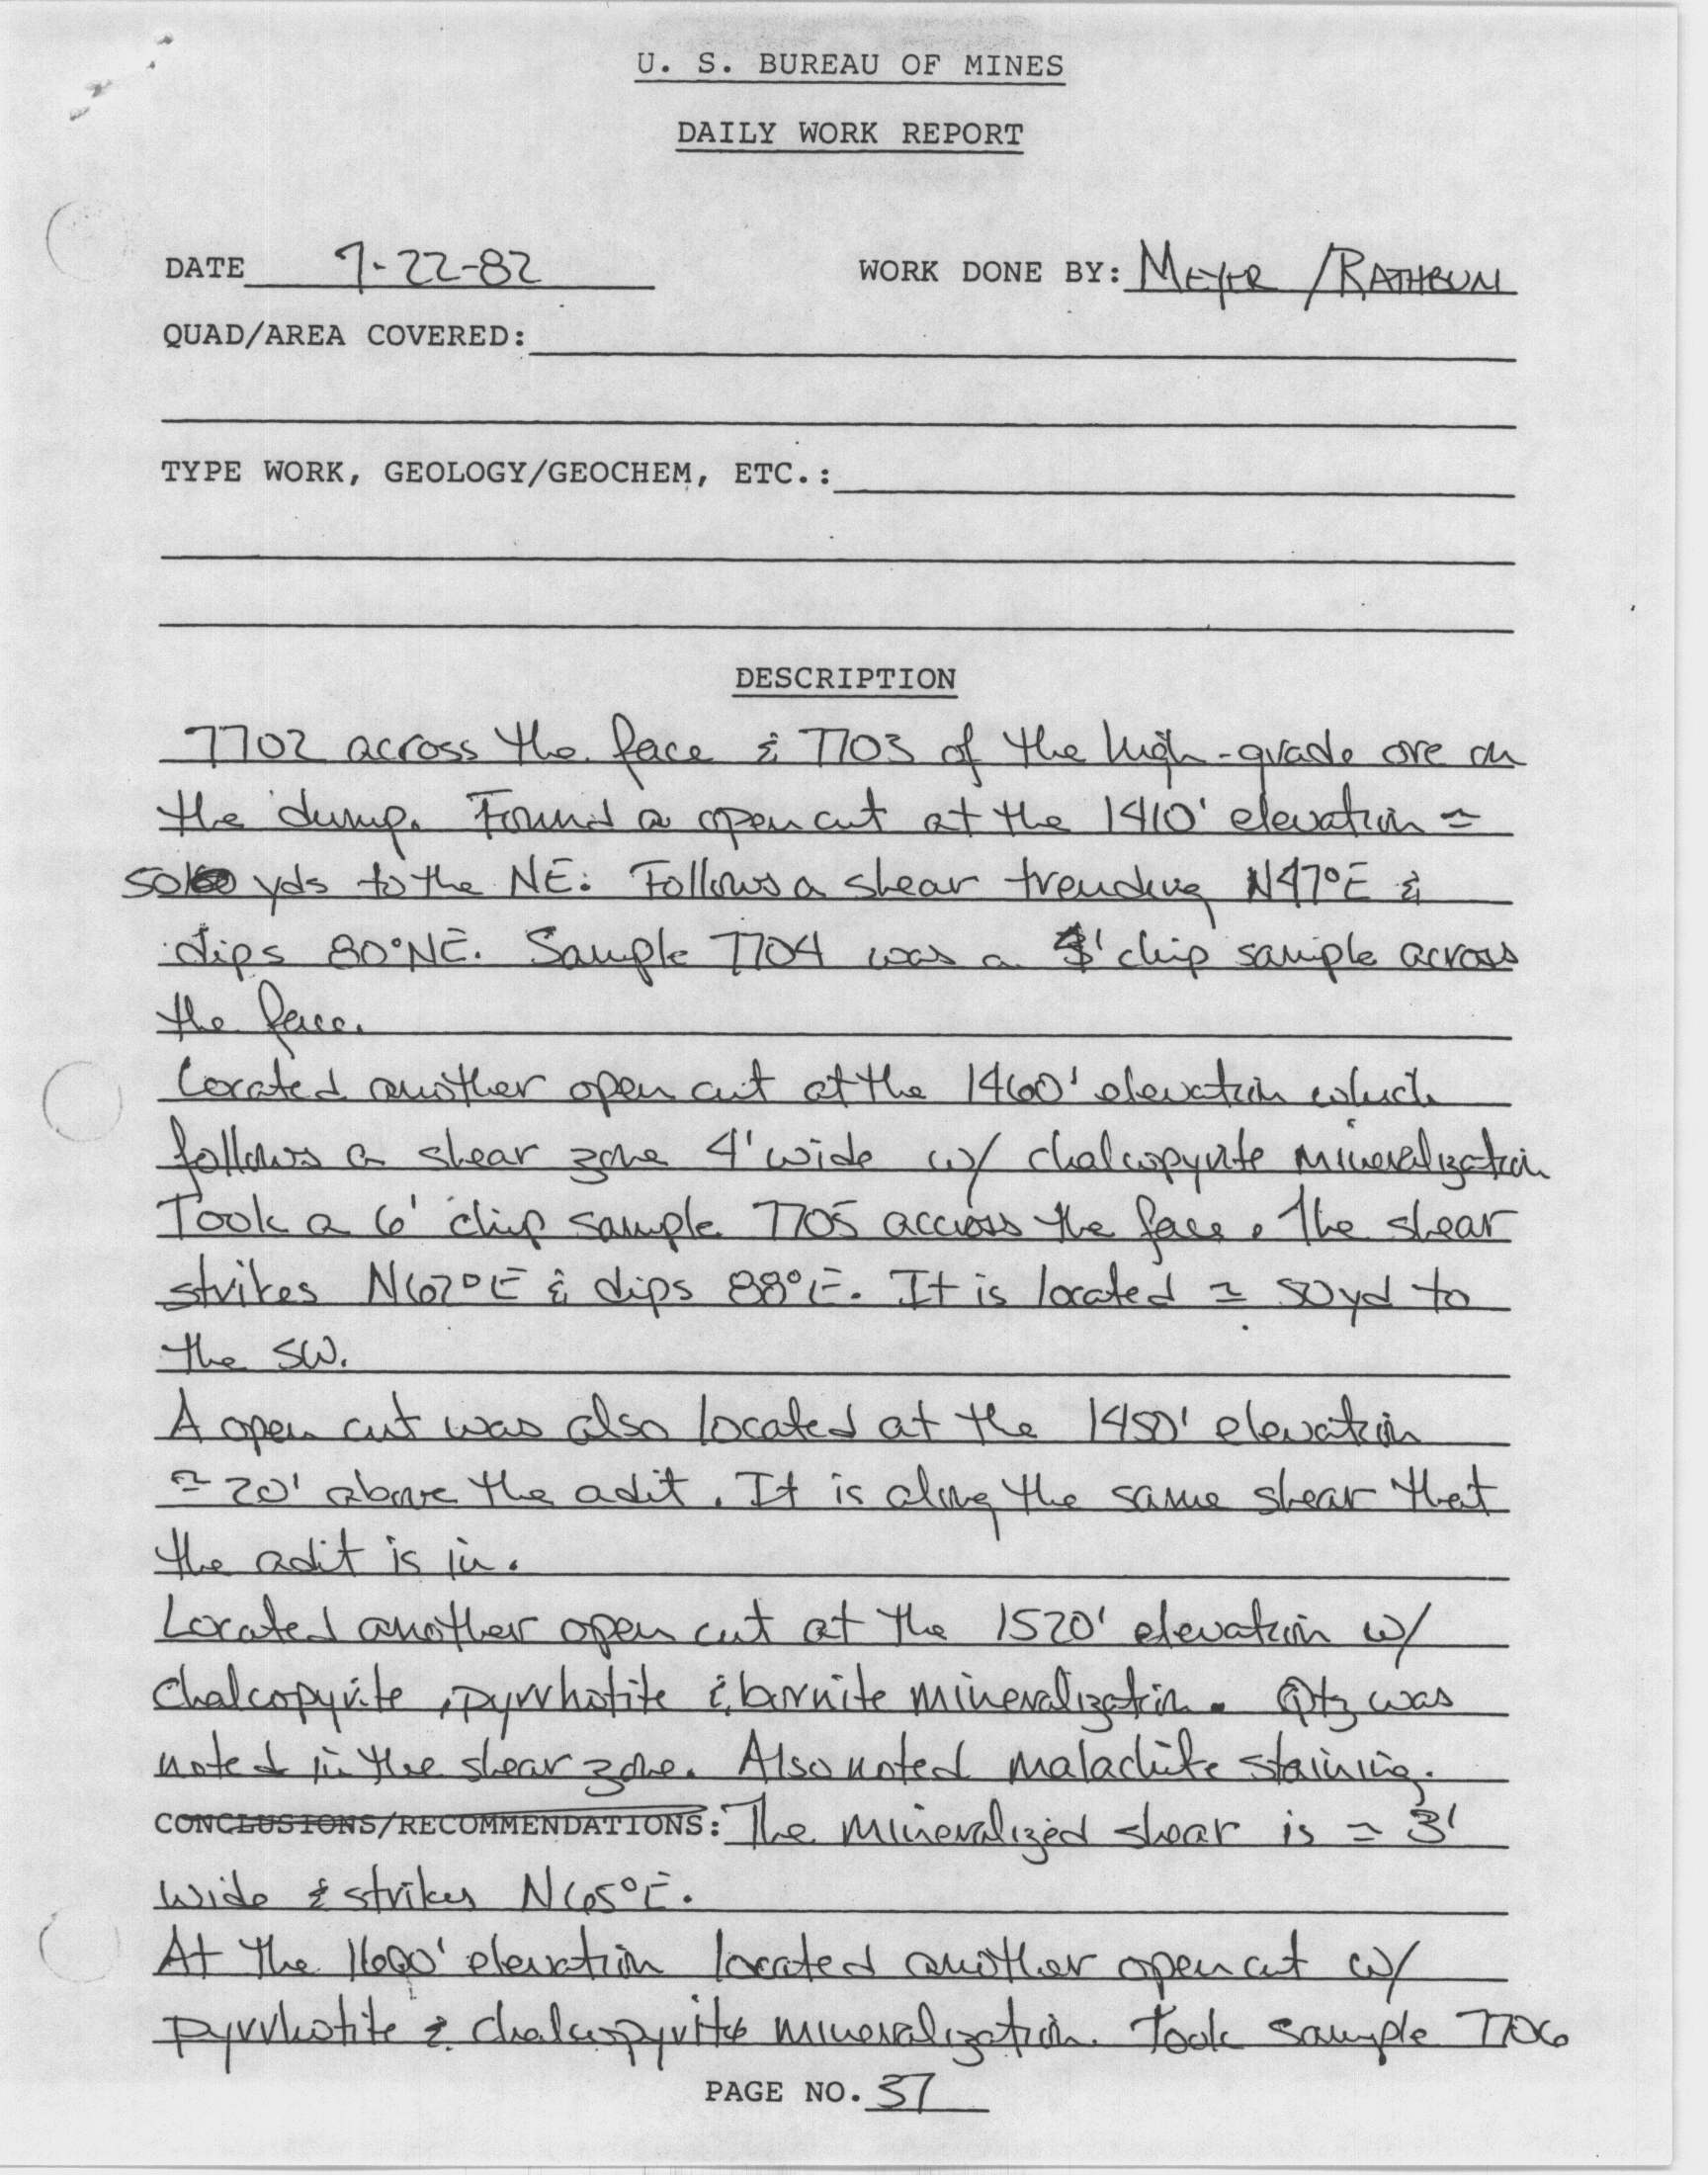 U. S. BUREAU OF MINES
DAILY WORK REPORT
DATE 7-22-82 WORK DONE BY: MEYER / RATHBUN
QUAD/AREA COVERED:
TYPE WORK, GEOLOGY/GEOCHEM, ETC.:
DESCRIPTION
7702 across the face & 7703 of the high-grade ore on
the dump. Found a open cut at the 1410' elevation ≃
50 yds to the NE. Follows a shear trending N47°E &
dips 80°NE. Sample 7704 was a chip sample across
the face.
Located another open cut at the 1460' elevation which
follows a shear zone 4' wide w/ chalcopyrite mineralization
Took a 6' chip sample 7705 accross the face. The shear
strikes N67°E & dips 88°E. It is located ≃ 50yd to
the SW.
A open cut was also located at the 1450' elevation
≃ 20' above the adit. It is along the same shear that
the adit is in.
Located another open cut at the 1520' elevation w/
chalcopyrite, pyrrhotite & bornite mineralization. Qtz was
noted in the shear zone. Also noted malachite staining.
CONCLUSIONS/RECOMMENDATIONS: The mineralized shear is ≃ 3'
wide & strikes N65°E.
At the 1600' elevation located another open cut w/
pyrrhotite & chalcopyrite mineralization. Took sample 7706
PAGE NO. 37